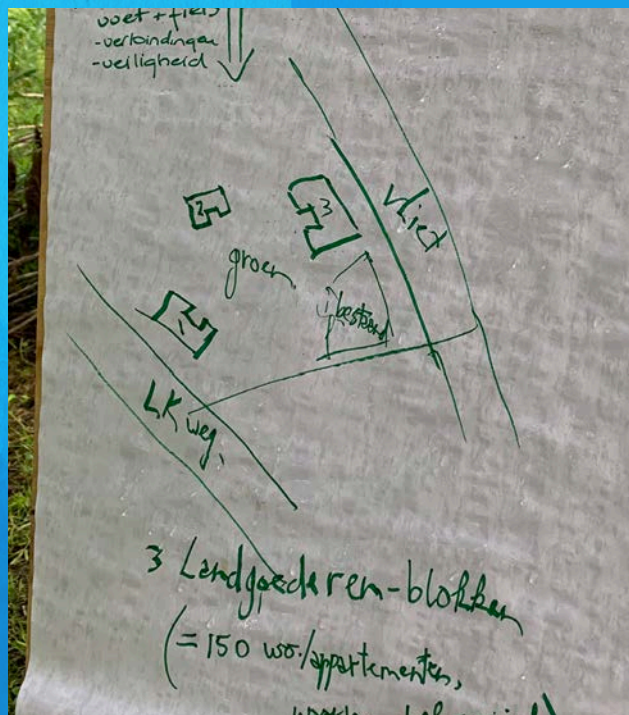 voet + fiets
-verbindingen
-veiligheid
2
3
vliet
groen
4 bestaand
1
LK weg.
3 Landgoederen-blokken
(= 150 wo./appartementen,